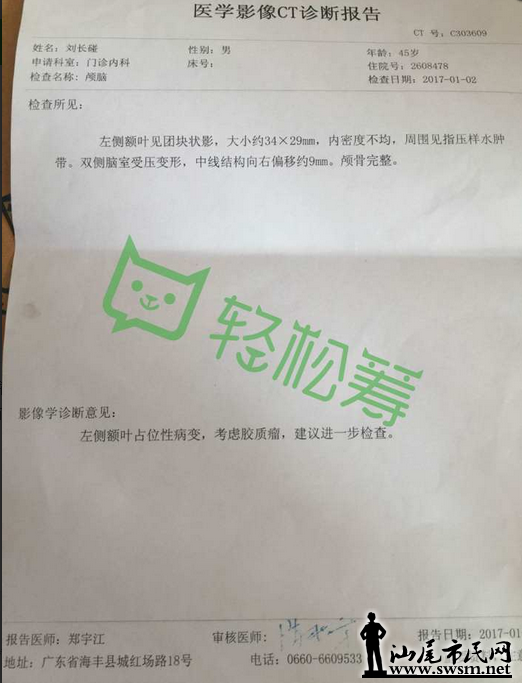 医学影像CT诊断报告
CT 号: C303609
姓名: 刘长碰 性别: 男 年龄: 45岁
申请科室: 门诊内科 床号: 住院号: 2608478
检查名称: 颅脑 检查日期: 2017-01-02
检查所见:
左侧额叶见团块状影，大小约34×29mm，内密度不均，周围见指压样水肿
带。双侧脑室受压变形，中线结构向右偏移约9mm。颅骨完整。
轻松筹
影像学诊断意见:
左侧额叶占位性病变，考虑胶质瘤，建议进一步检查。
报告医师: 郑宇江 审核医师: 报告日期: 2017-01
地址: 广东省海丰县城红场路18号 电话: 0660-6609533
汕尾市民网
www.swsm.net